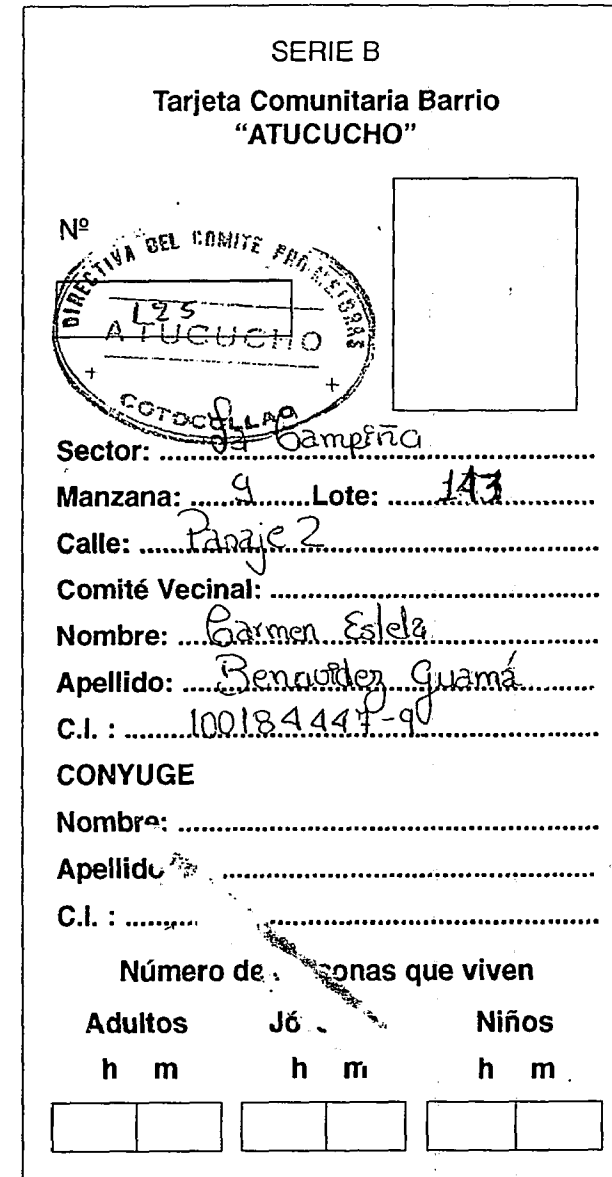 SERIE B
Tarjeta Comunitaria Barrio
“ATUCUCHO”
Nº
DIRECTIVA DEL COMITE PRO-MEJORAS
125
ATUCUCHO
COTOCOLLAO
Sector: La Campiña
Manzana: 9 Lote: 143
Calle: Pasaje 2
Comité Vecinal:
Nombre: Carmen Estela
Apellido: Benavidez Guamá
C.I. : 100184447-9
CONYUGE
Nombre:
Apellido
C.I. :
Número de que viven
Adultos Niños
h m h m h m